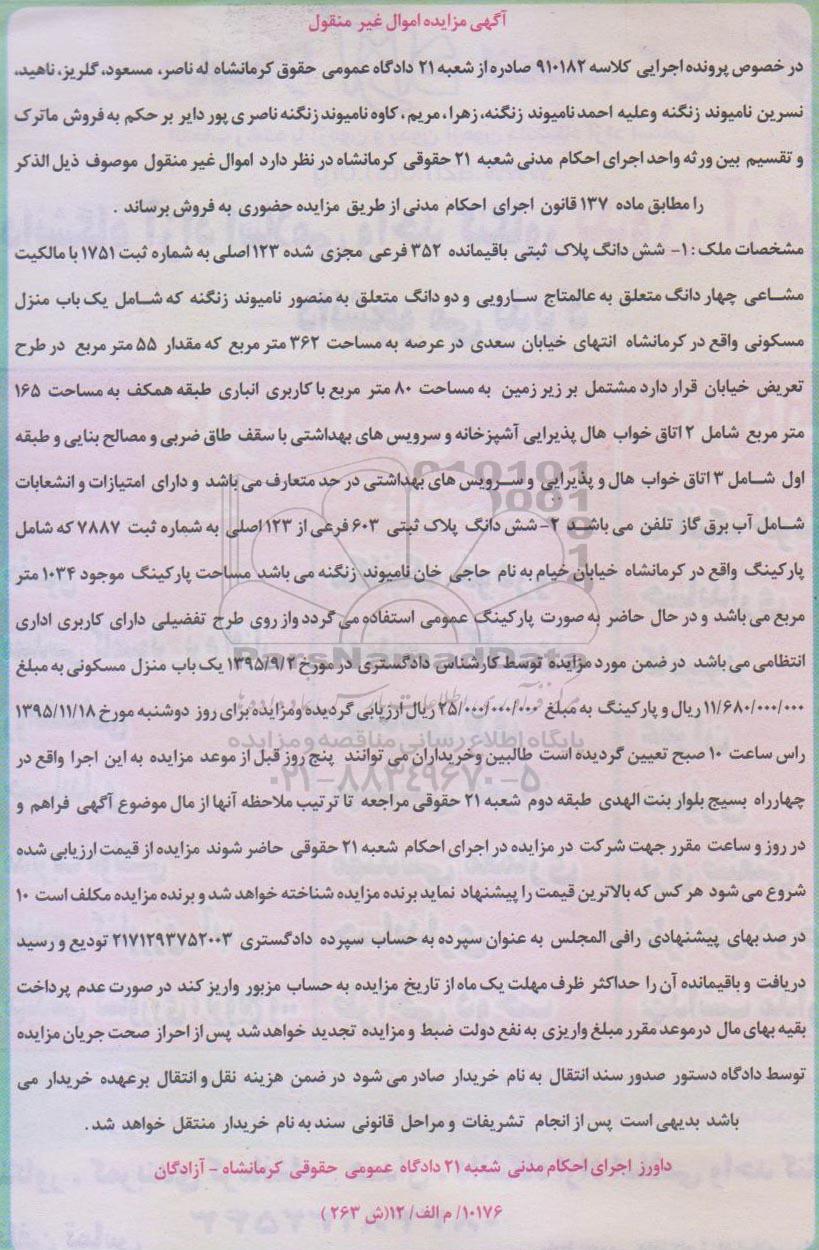 آگهی مزایده اموال غیر منقول
در خصوص پرونده اجرایی کلاسه ۹۱۰۱۸۲ صادره از شعبه ۲۱ دادگاه عمومی حقوق کرمانشاه له ناصر، مسعود، گلریز، ناهید،
نسرین نامیوند زنگنه وعلیه احمد نامیوند زنگنه، زهرا، مریم، کاوه نامیوند زنگنه ناصری پور دایر بر حکم به فروش ماترک
و تقسیم بین ورثه واحد اجرای احکام مدنی شعبه ۲۱ حقوقی کرمانشاه در نظر دارد اموال غیر منقول موصوف ذیل الذکر
را مطابق ماده ۱۳۷ قانون اجرای احکام مدنی از طریق مزایده حضوری به فروش برساند .
مشخصات ملک : ۱- شش دانگ پلاک ثبتی باقیمانده ۳۵۲ فرعی مجزی شده ۱۲۳ اصلی به شماره ثبت ۱۷۵۱ با مالکیت
مشاعی چهار دانگ متعلق به عالمتاج سارویی و دو دانگ متعلق به منصور نامیوند زنگنه که شامل یک باب منزل
مسکونی واقع در کرمانشاه انتهای خیابان سعدی در عرصه به مساحت ۳۶۲ متر مربع که مقدار ۵۵ متر مربع در طرح
تعریض خیابان قرار دارد مشتمل بر زیر زمین به مساحت ۸۰ متر مربع با کاربری انباری طبقه همکف به مساحت ۱۶۵
متر مربع شامل ۲ اتاق خواب هال پذیرایی آشپزخانه و سرویس های بهداشتی با سقف طاق ضربی و مصالح بنایی و طبقه
اول شامل ۳ اتاق خواب هال و پذیرایی و سرویس های بهداشتی در حد متعارف می باشد و دارای امتیازات و انشعابات
شامل آب برق گاز تلفن می باشد ۲- شش دانگ پلاک ثبتی ۶۰۳ فرعی از ۱۲۳ اصلی به شماره ثبت ۷۸۸۷ که شامل
پارکینگ واقع در کرمانشاه خیابان خیام به نام حاجی خان نامیوند زنگنه می باشد مساحت پارکینگ موجود ۱۰۳۴ متر
مربع می باشد و در حال حاضر به صورت پارکینگ عمومی استفاده می گردد واز روی طرح تفضیلی دارای کاربری اداری
انتظامی می باشد در ضمن مورد مزایده توسط کارشناس دادگستری در مورخ ۱۳۹۵/۹/۲ یک باب منزل مسکونی به مبلغ
۱۱/۶۸۰/۰۰۰/۰۰۰ ریال و پارکینگ به مبلغ ۲۵/۰۰۰/۰۰۰/۰۰۰ ریال ارزیابی گردیده ومزایده برای روز دوشنبه مورخ ۱۳۹۵/۱۱/۱۸
راس ساعت ۱۰ صبح تعیین گردیده است طالبین وخریداران می توانند پنج روز قبل از موعد مزایده به این اجرا واقع در
چهارراه بسیج بلوار بنت الهدی طبقه دوم شعبه ۲۱ حقوقی مراجعه تا ترتیب ملاحظه آنها از مال موضوع آگهی فراهم و
در روز و ساعت مقرر جهت شرکت در مزایده در اجرای احکام شعبه ۲۱ حقوقی حاضر شوند مزایده از قیمت ارزیابی شده
شروع می شود هر کس که بالاترین قیمت را پیشنهاد نماید برنده مزایده شناخته خواهد شد و برنده مزایده مکلف است ۱۰
در صد بهای پیشنهادی رافی المجلس به عنوان سپرده به حساب سپرده دادگستری ۲۱۷۱۲۹۳۷۵۲۰۰۳ تودیع و رسید
دریافت و باقیمانده آن را حداکثر ظرف مهلت یک ماه از تاریخ مزایده به حساب مزبور واریز کند در صورت عدم پرداخت
بقیه بهای مال درموعد مقرر مبلغ واریزی به نفع دولت ضبط و مزایده تجدید خواهد شد پس از احراز صحت جریان مزایده
توسط دادگاه دستور صدور سند انتقال به نام خریدار صادر می شود در ضمن هزینه نقل و انتقال برعهده خریدار می
باشد بدیهی است پس از انجام تشریفات و مراحل قانونی سند به نام خریدار منتقل خواهد شد .
داورز اجرای احکام مدنی شعبه ۲۱ دادگاه عمومی حقوقی کرمانشاه - آزادگان
۱۰۱۷۶/ م الف/ ۱۲(ش ۲۶۳ )
ParsNamadData
پایگاه اطلاع رسانی مناقصه و مزایده
۰۲۱-۸۸۳۴۹۶۷۰-۵